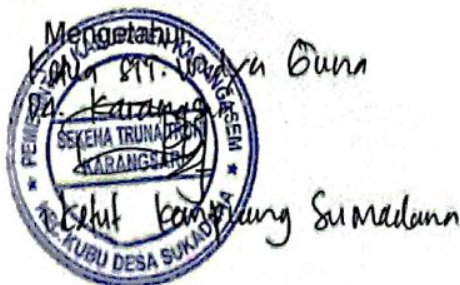 Mengetahui,
Ketua STT. Widya Guna
Br. Karangsari
PEMERINTAH KABUPATEN KARANGASEM
SEKEHA TRUNA TRUNI
KARANGSARI
KEC. KUBU DESA SUKADANA
Ketut Sumadana